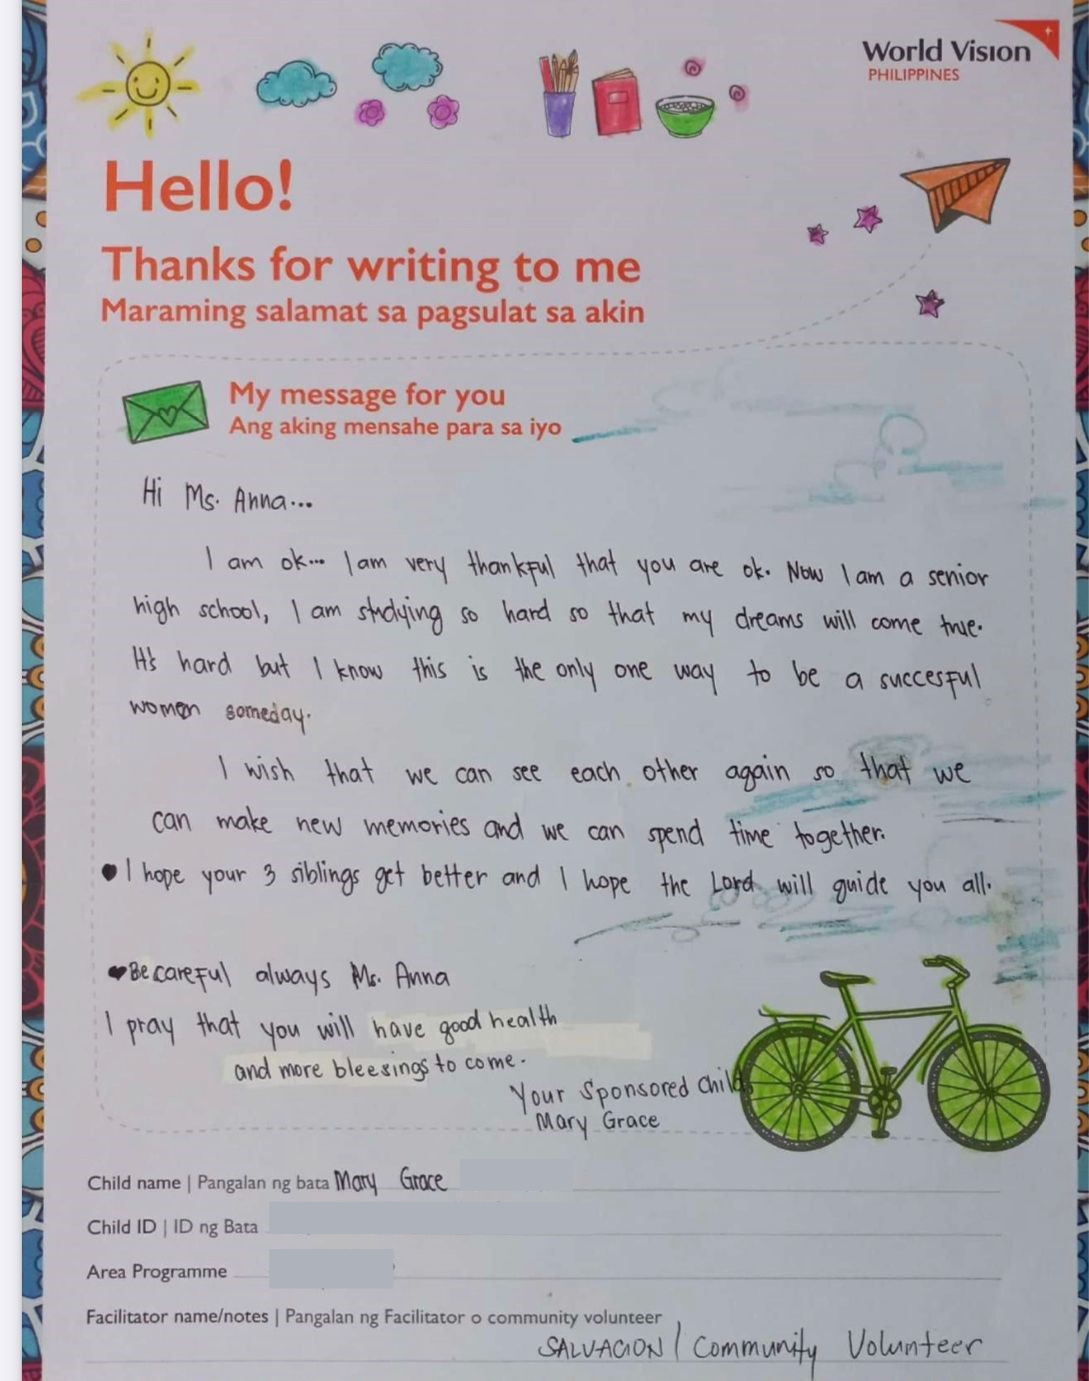 World Vision
PHILIPPINES
Hello!
Thanks for writing to me
Maraming salamat sa pagsulat sa akin
My message for you
Ang aking mensahe para sa iyo
Hi Ms. Anna...
I am ok... I am very thankful that you are ok. Now I am a senior
high school, I am studying so hard so that my dreams will come true.
It's hard but I know this is the only one way to be a succesful
women someday.
I wish that we can see each other again so that we
can make new memories and we can spend time together.
I hope your 3 siblings get better and I hope the Lord will guide you all.
Be careful always Ms. Anna
I pray that you will have good health
and more bleesings to come.
Your Sponsored Child,
Mary Grace
Child name | Pangalan ng bata Mary Grace
Child ID | ID ng Bata
Area Programme
Facilitator name/notes | Pangalan ng Facilitator o community volunteer
SALVACION / Community Volunteer